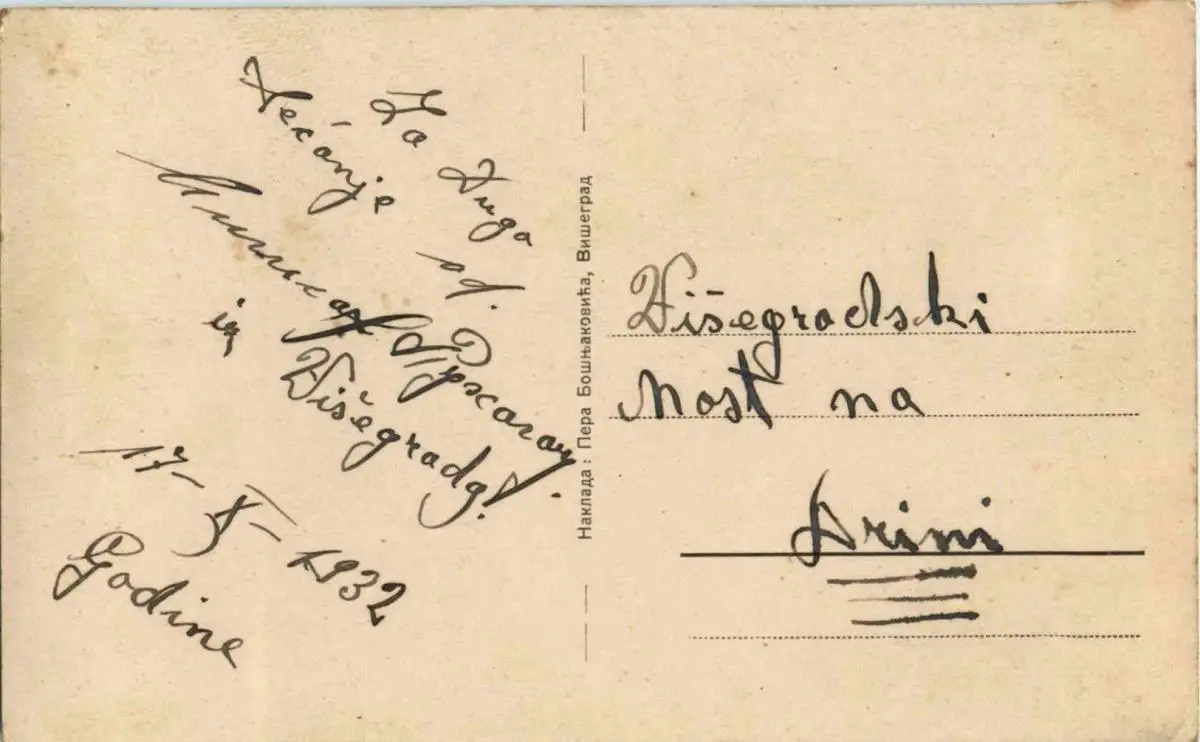 Za Duga
Sećanje
od
iz
Višegrada!
17-X-1932
Godine
Наклада: Пера Бошњаковића, Вишеград
Višegradski
Most na
Drini